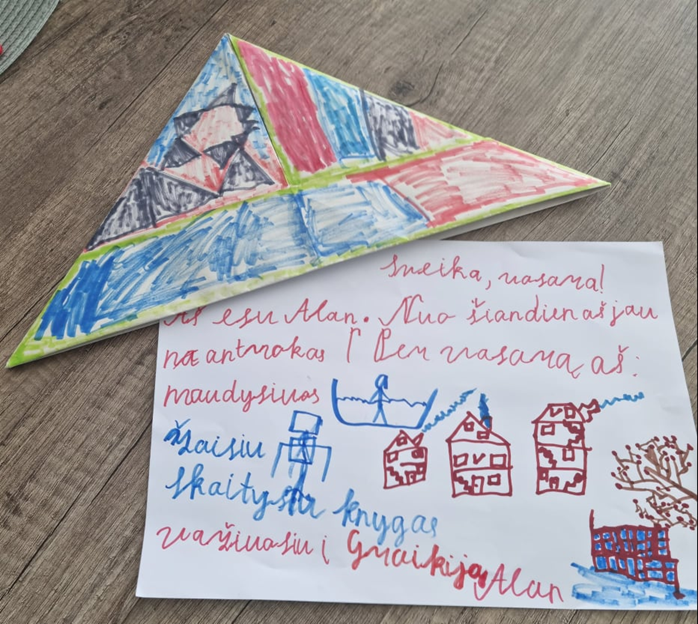 Sveika, vasara!
Aš esu Alan. Nuo šiandien aš jau
ne antrokas! Per vasarą aš:
maudysiuos
žaisiu
skaitysiu knygas
važiuosiu į Graikiją
Alan